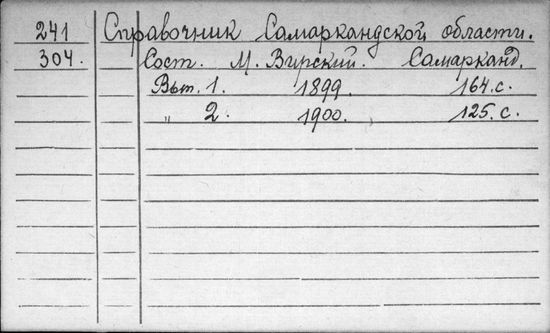 241 Справочник Самаркандской области.
304. Сост. М. Вирский. Самарканд.
Вып. 1. 1899. 164 с.
„ 2. 1900. 125. с.